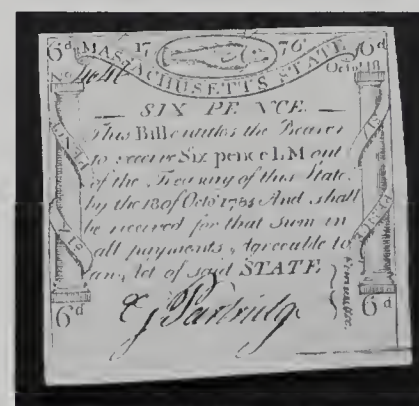 6d 17 76 6d
MASSACHUSETTS STATE
No Octor 18
SIX PENCE.
This Bill entitles the Bearer
to receive Six pence L.M out
of the Treasury of this State.
by the 18 of Octor 1784 And shall
be received for that Sum in
all payments, Agreeable to
an Act of said STATE
J Partridge
6d 6d